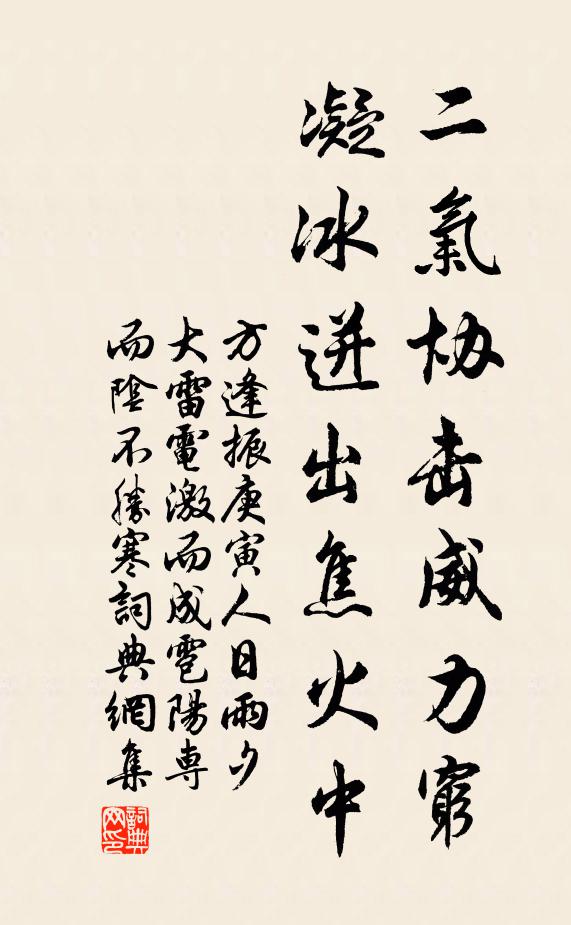 二氣协击威力窮
凝冰迸出焦火中
方逢振庚寅人日雨夕
大雷電激而成雹陽専
而陰不勝寒詞典網集
詞典
网印